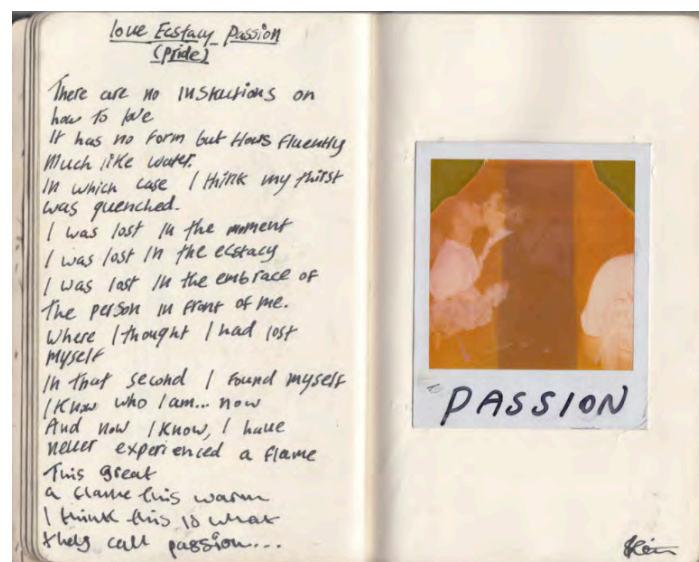 love Ecstacy Passion
(Pride)
There are no Instructions on
how to love
It has no form but flows fluently
Much like water.
In which case I think my thirst
was quenched.
I was lost in the moment
I was lost in the ecstacy
I was lost in the embrace of
The person in front of me.
Where I thought I had lost
myself
In that second I found myself
I know who I am... now
And now I know, I have
never experienced a flame
This great
a flame this warm
I think this is what
they call passion....
PASSION